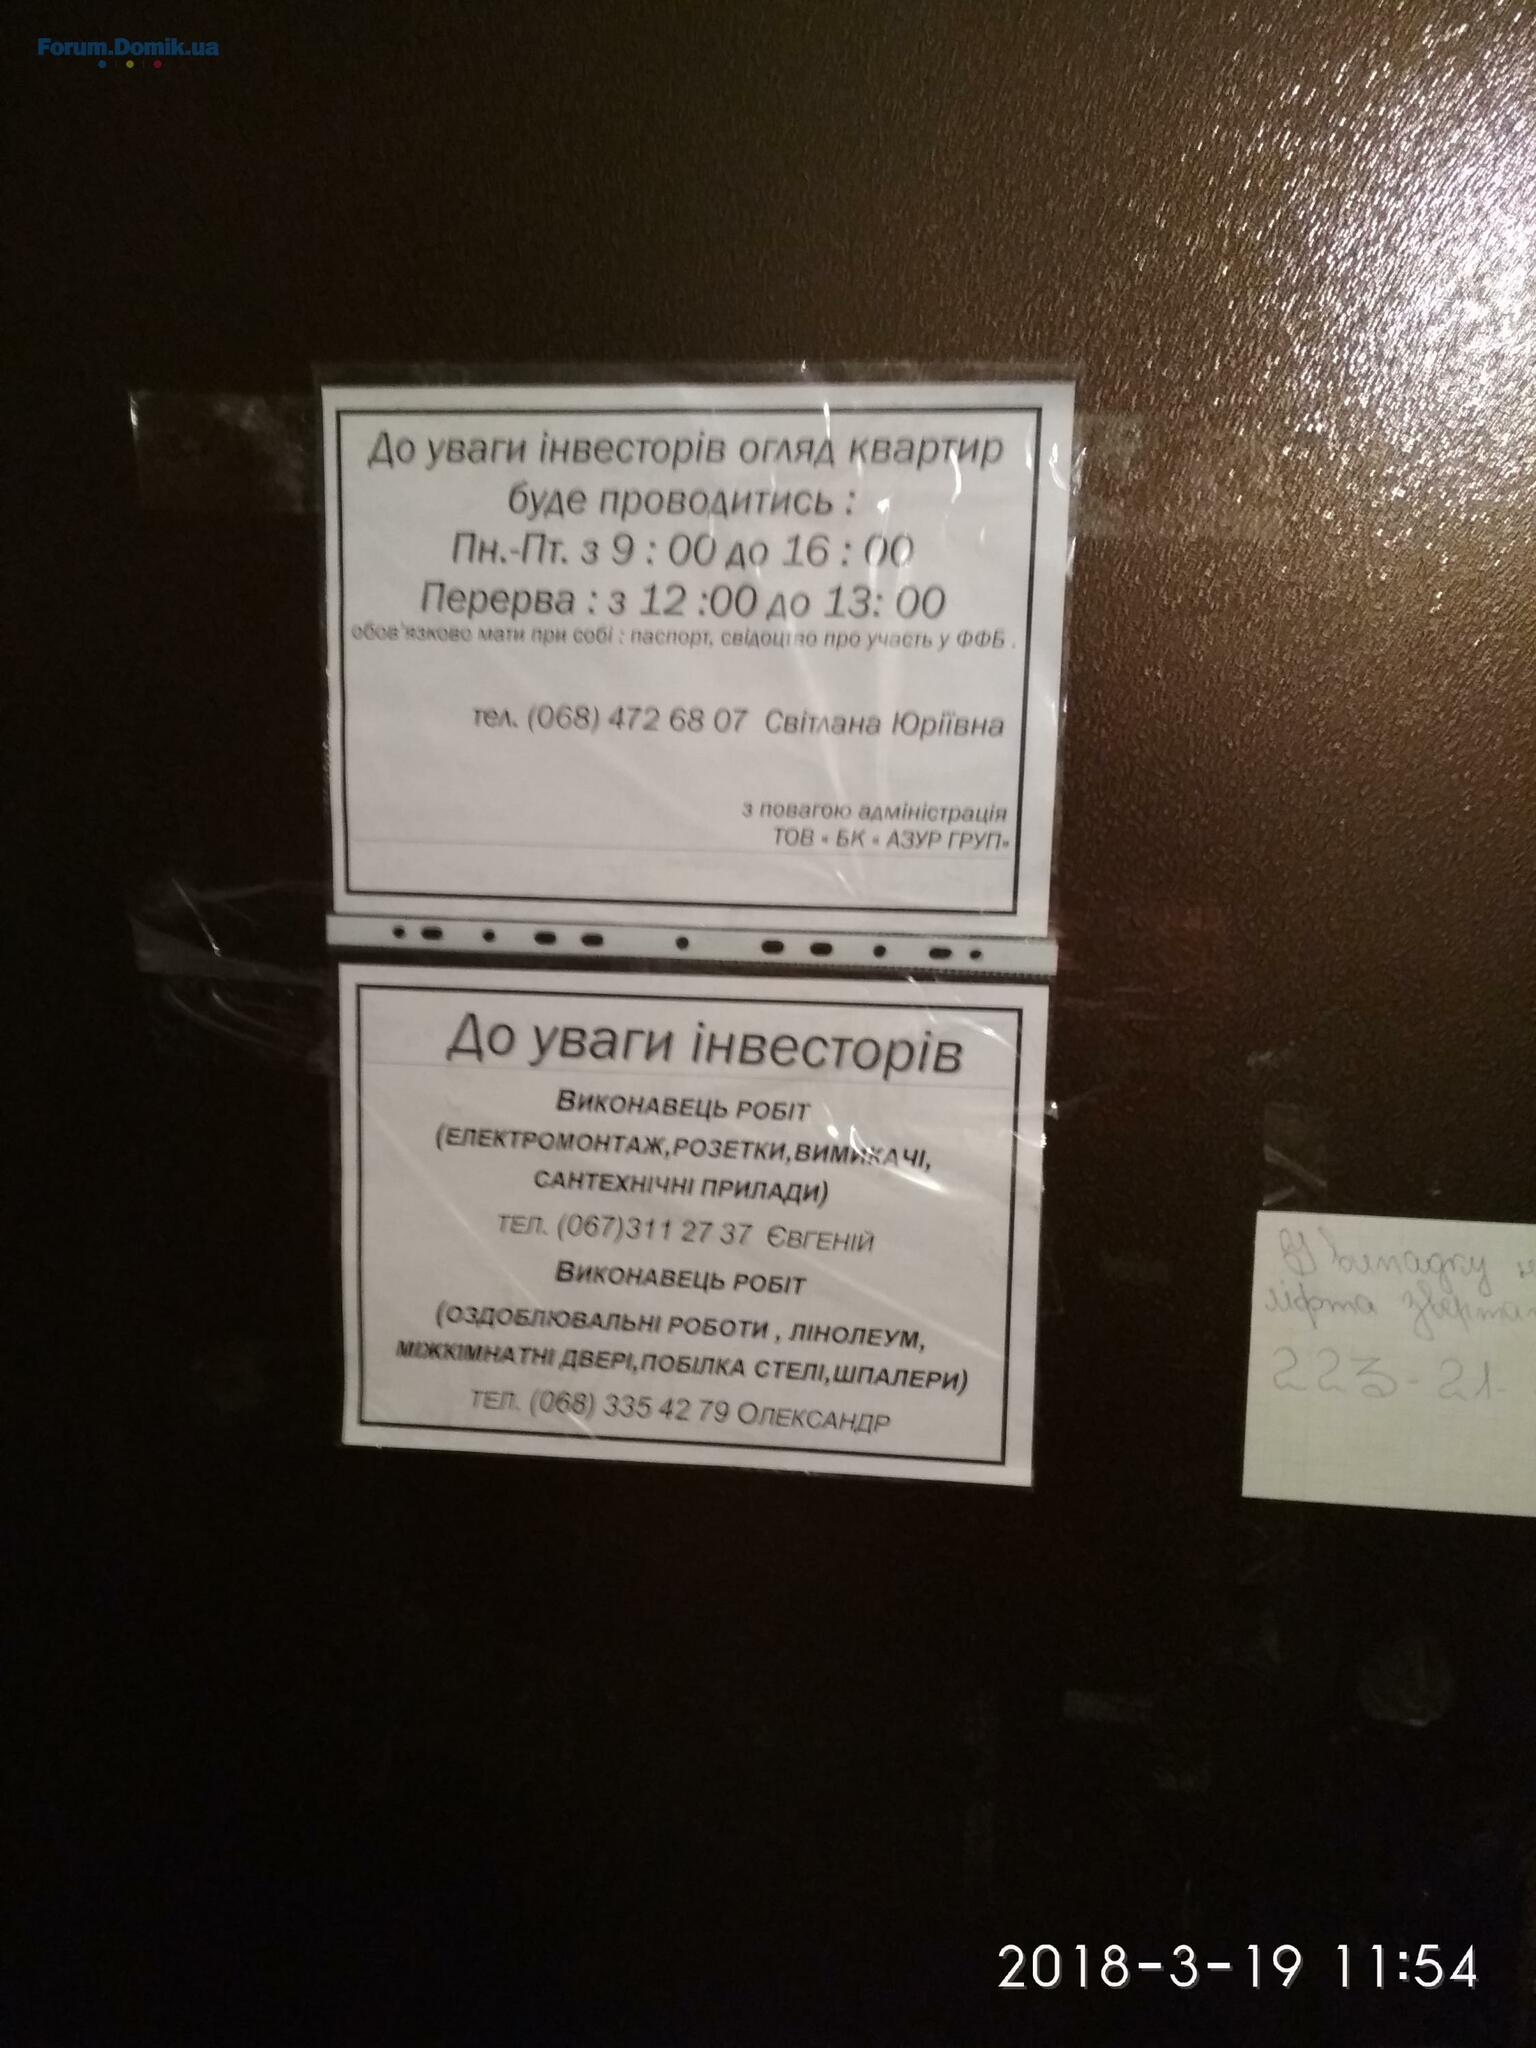 Forum.Domik.ua
До уваги інвесторів огляд квартир
буде проводитись :
Пн.-Пт. з 9 : 00 до 16 : 00
Перерва : з 12 :00 до 13: 00
обов'язково мати при собі : паспорт, свідоцтво про участь у ФФБ .
тел. (068) 472 68 07 Світлана Юріївна
з повагою адміністрація
ТОВ « БК « АЗУР ГРУП»
До уваги інвесторів
ВИКОНАВЕЦЬ РОБІТ
(ЕЛЕКТРОМОНТАЖ,РОЗЕТКИ,ВИМИКАЧІ,
САНТЕХНІЧНІ ПРИЛАДИ)
ТЕЛ. (067)311 27 37 ЄВГЕНІЙ
ВИКОНАВЕЦЬ РОБІТ
(ОЗДОБЛЮВАЛЬНІ РОБОТИ , ЛІНОЛЕУМ,
МІЖКІМНАТНІ ДВЕРІ,ПОБІЛКА СТЕЛІ,ШПАЛЕРИ)
ТЕЛ. (068) 335 42 79 ОЛЕКСАНДР
випадку
ліфта
223-21-
2018-3-19 11:54